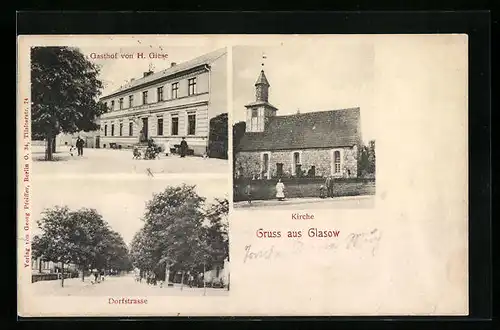 Gasthof von H. Giese
Kirche
Gruss aus Glasow
Dorfstrasse
Verlag von Georg Pfeiffer, Berlin O. 34, Tilsiterstr. 24